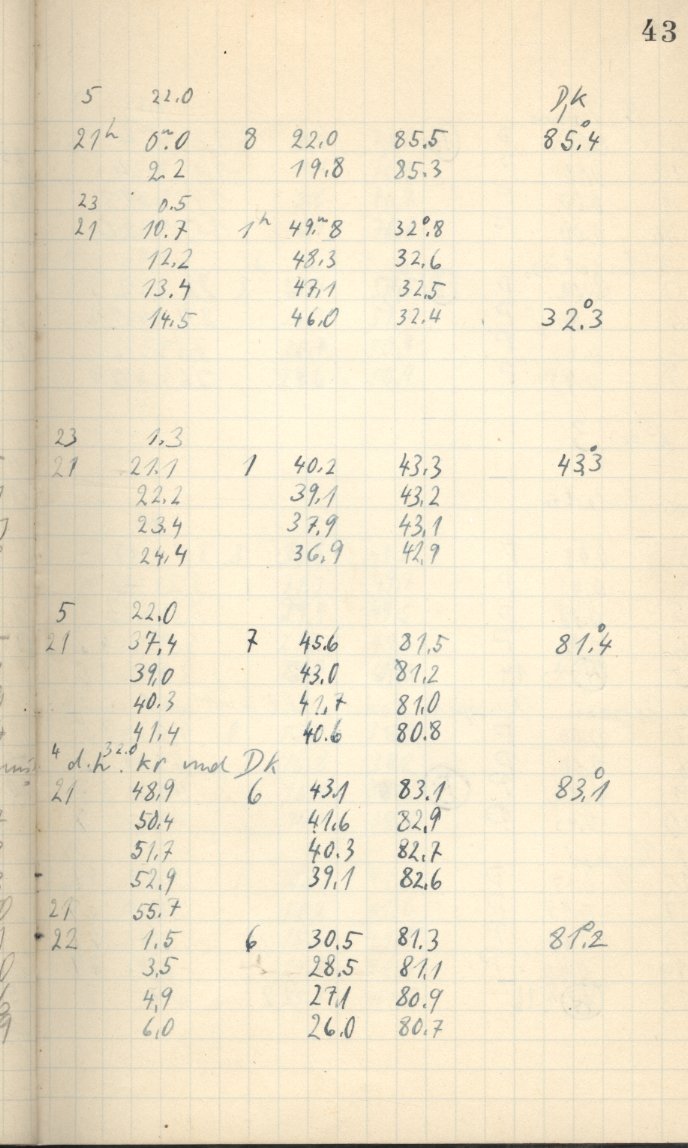 43
5 22.0 D,K
21h 0m.0 8 22.0 85.5 85°.4
2.2 19.8 85.3
23 0.5
21 10.7 1h 49.m8 32°.8
12.2 48.3 32.6
13.4 47.1 32.5
14.5 46.0 32.4 32°.3
23 1.3
21 21.1 1 40.2 43.3 43°.3
22.2 39.1 43.2
23.4 37.9 43.1
24.4 36.9 42.9
5 22.0
21 37.4 7 45.6 81.5 81°.4
39.0 43.0 81.2
40.3 41.7 81.0
41.4 40.6 80.8
4 d.h. 32.0 kr und DK
21 48.9 6 43.1 83.1 83°.1
50.4 41.6 82.9
51.7 40.3 82.7
52.9 39.1 82.6
21 55.7
22 1.5 6 30.5 81.3 81°.2
3.5 28.5 81.1
4.9 27.1 80.9
6.0 26.0 80.7